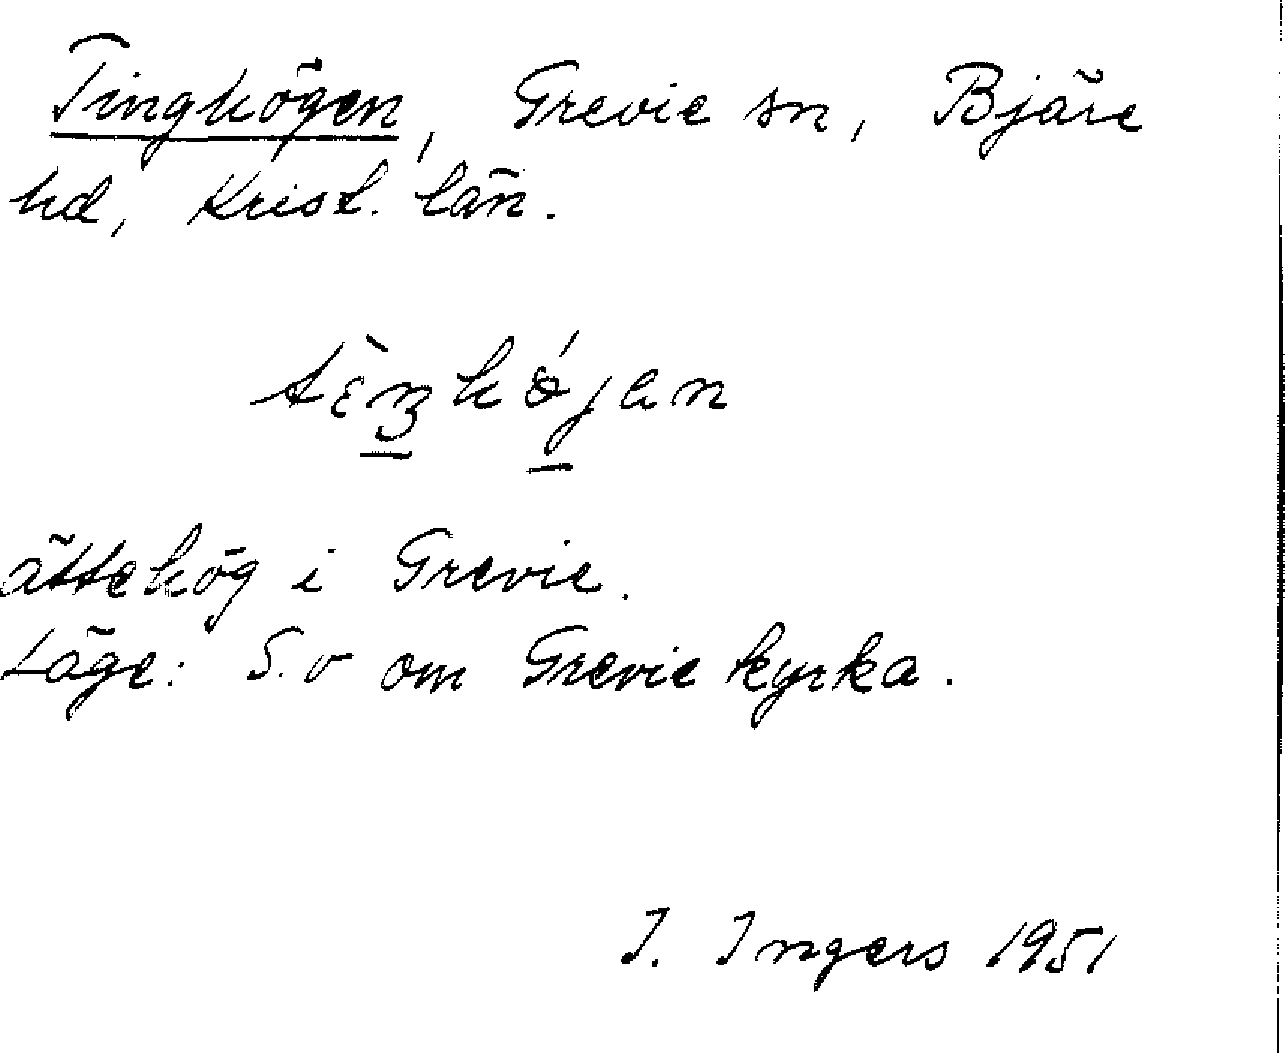 Tinghögen, Grevie sn, Bjäre
hd, Krist. län.
ättehög i Grevie.
Läge: S.v om Grevie kyrka.
I. Ingers 1951